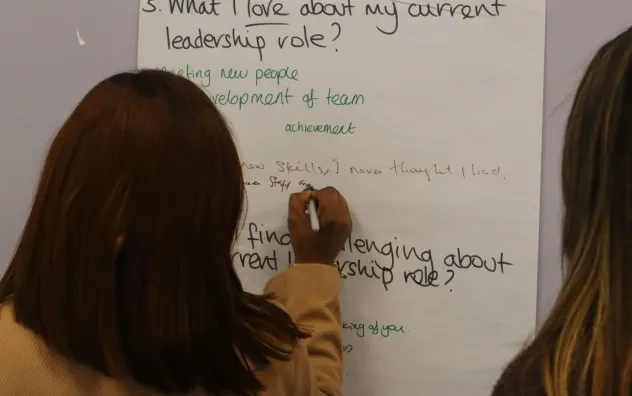 3. What I love about my current
leadership role?
Meeting new people
velopment of team
achievement
new skills, I never thought I had.
I find llenging about
rrent l rship role?
king of you.